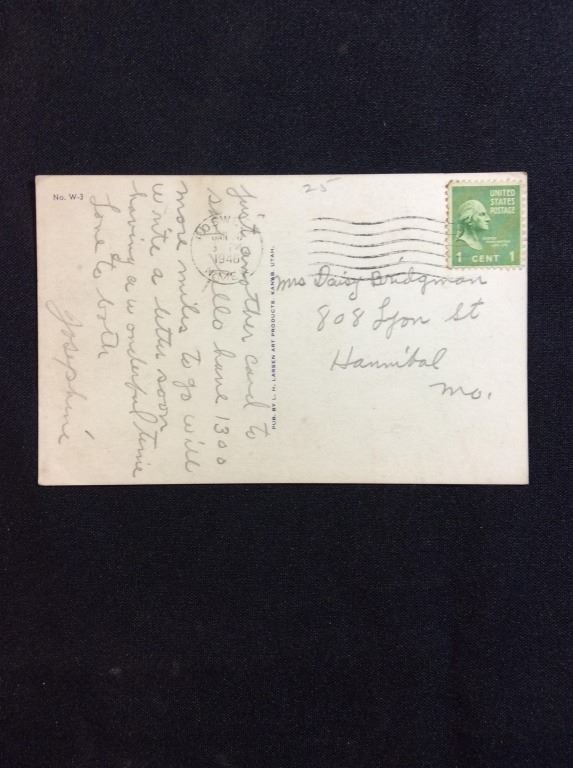 No. W-3
Just another card to
say Hello have 1300
more miles to go will
write a letter soon
having a wonderful time
Love to both
Josephine
PUB. BY L. H. LARSEN ART PRODUCTS, KANAB, UTAH.
25
1948
UNITED
STATES
POSTAGE
1 CENT 1
Mrs Daisy Bridgman
808 Lyon St
Hannibal
Mo.